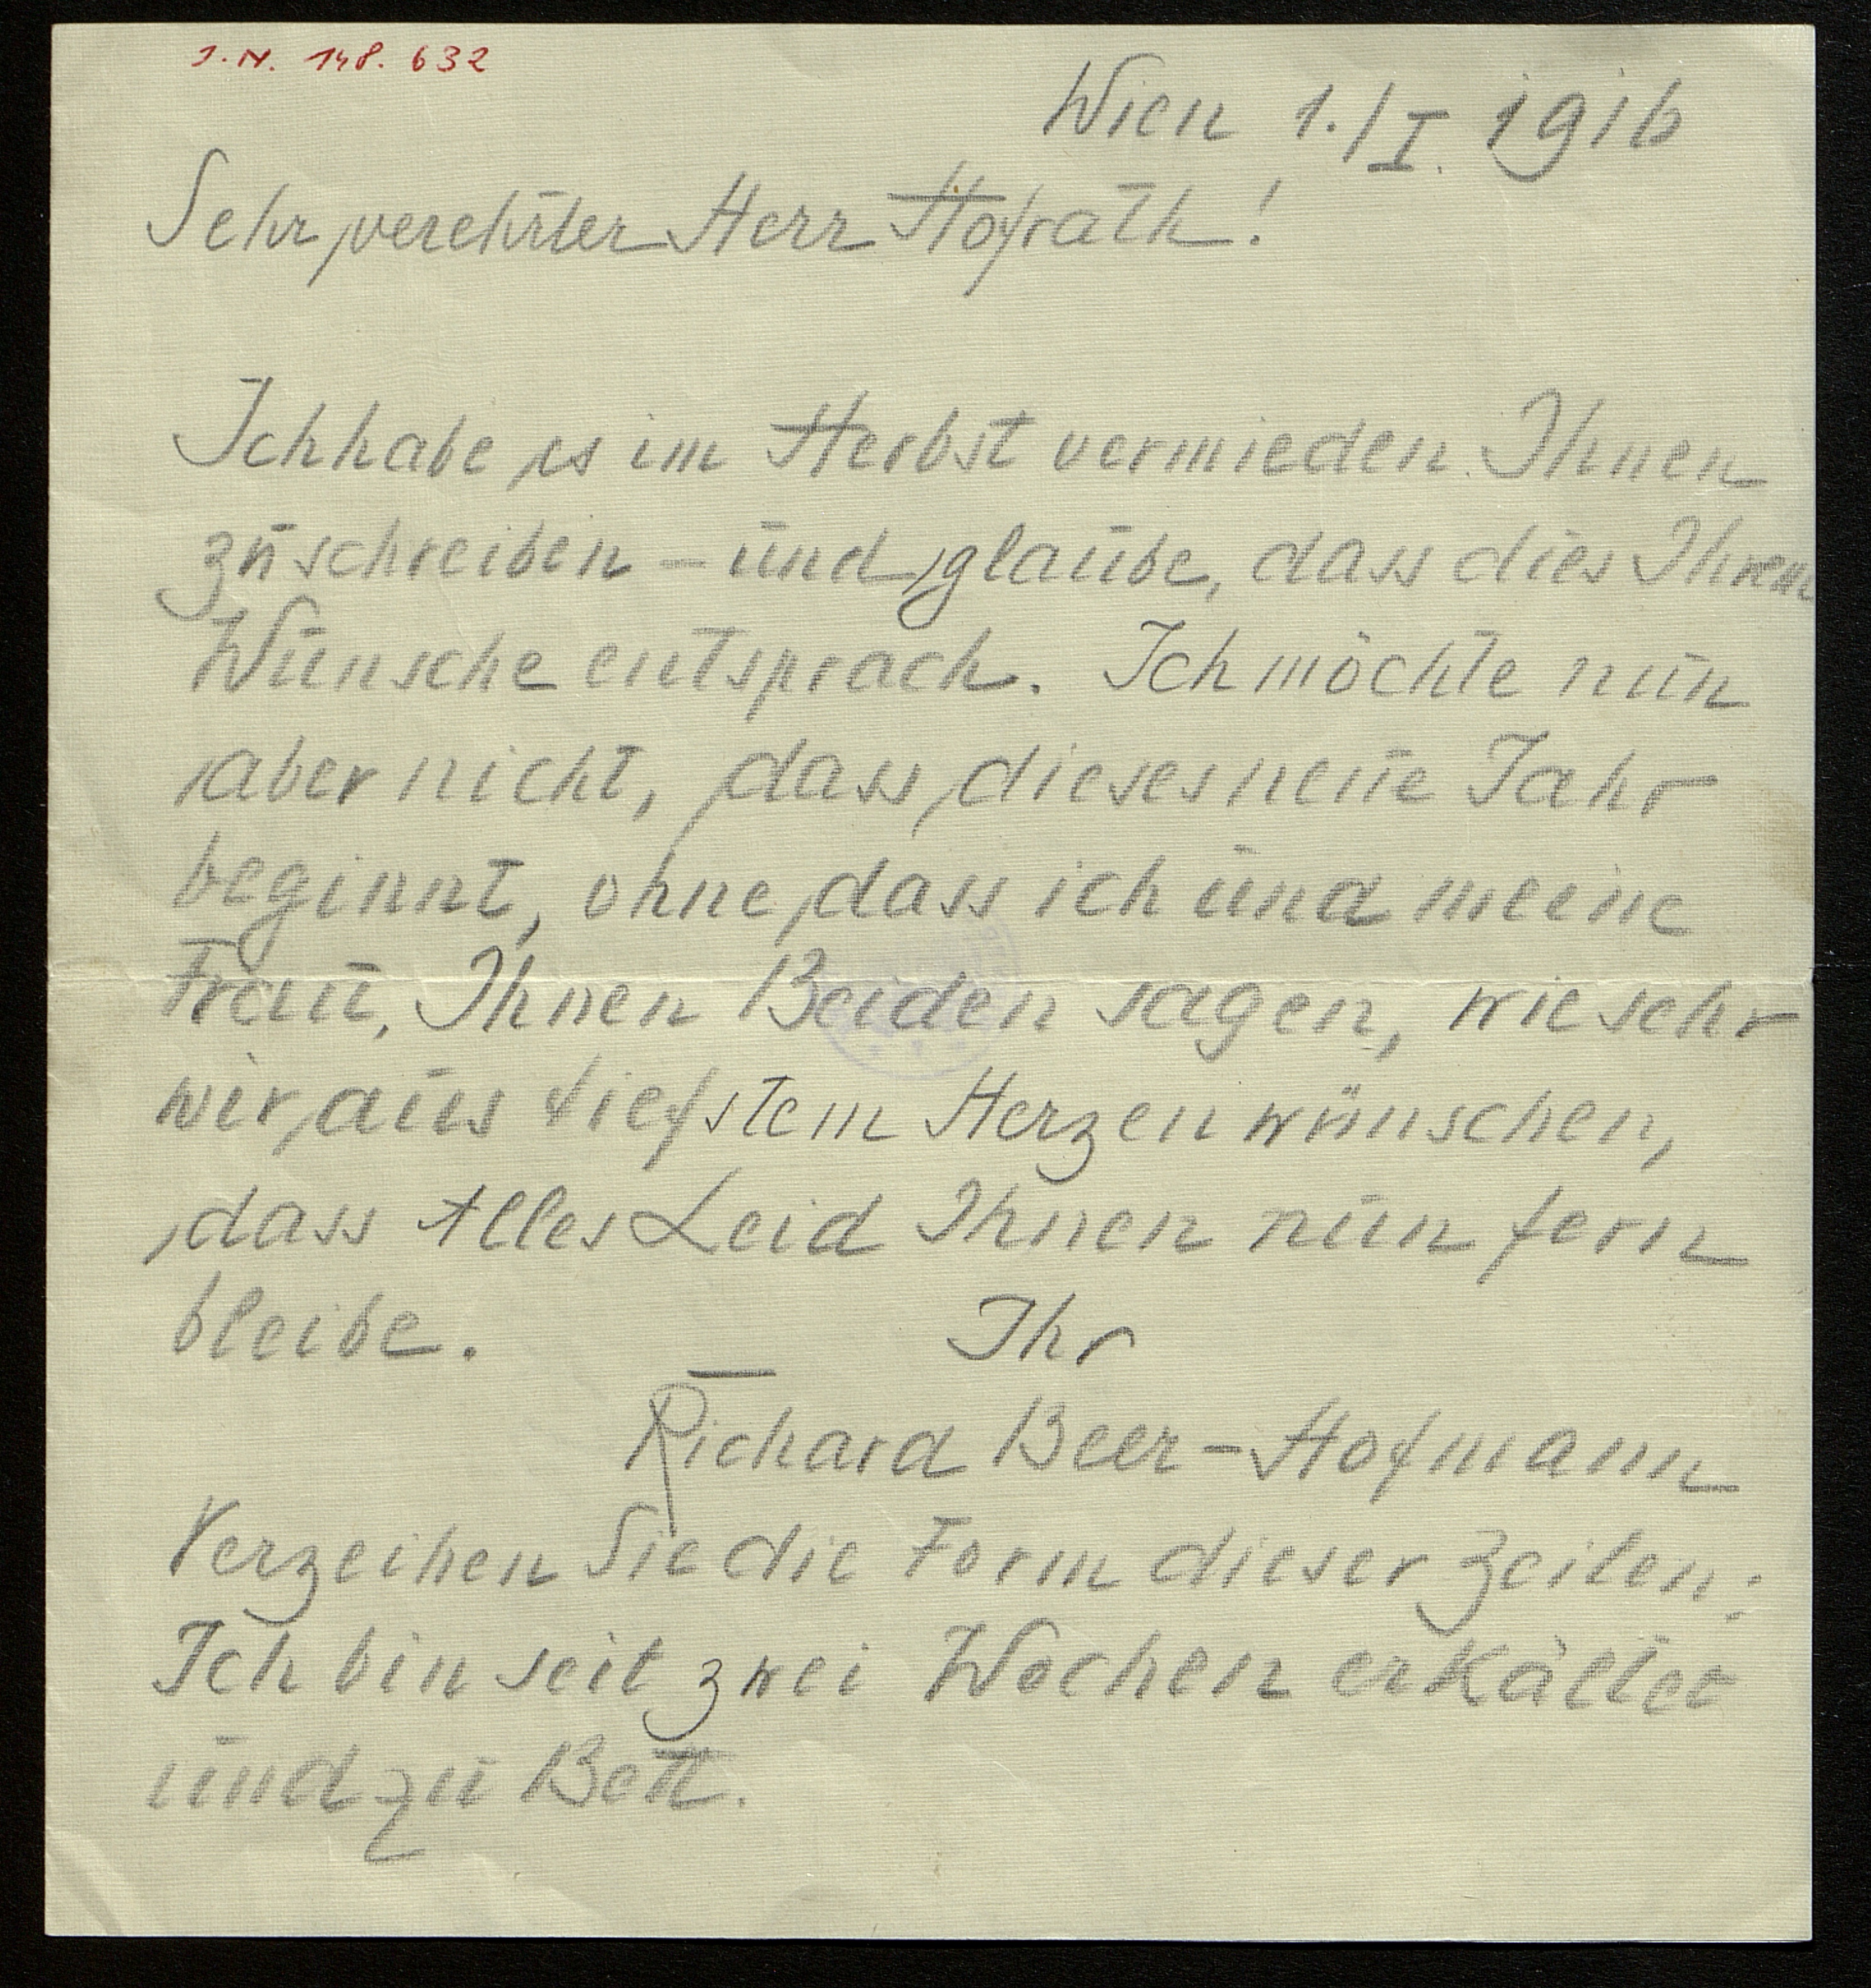 I. N. 148. 632
Wien 1./I. 1916
Sehr verehrter Herr Hofrath!
Ich habe es im Herbst vermieden Ihnen
zu schreiben – und glaube, dass dies Ihrem
Wunsche entsprach. Ich möchte nun
aber nicht, dass dieses neue Jahr
beginnt, ohne dass ich und meine
Frau, Ihnen Beiden sagen, wie sehr
wir aus tiefstem Herzen wünschen,
dass Alles Leid Ihnen nun fern
bleibe. — Ihr
Richard Beer-Hofmann
Verzeihen Sie die Form dieser Zeilen:
Ich bin seit zwei Wochen erkältet
und zu Bett.